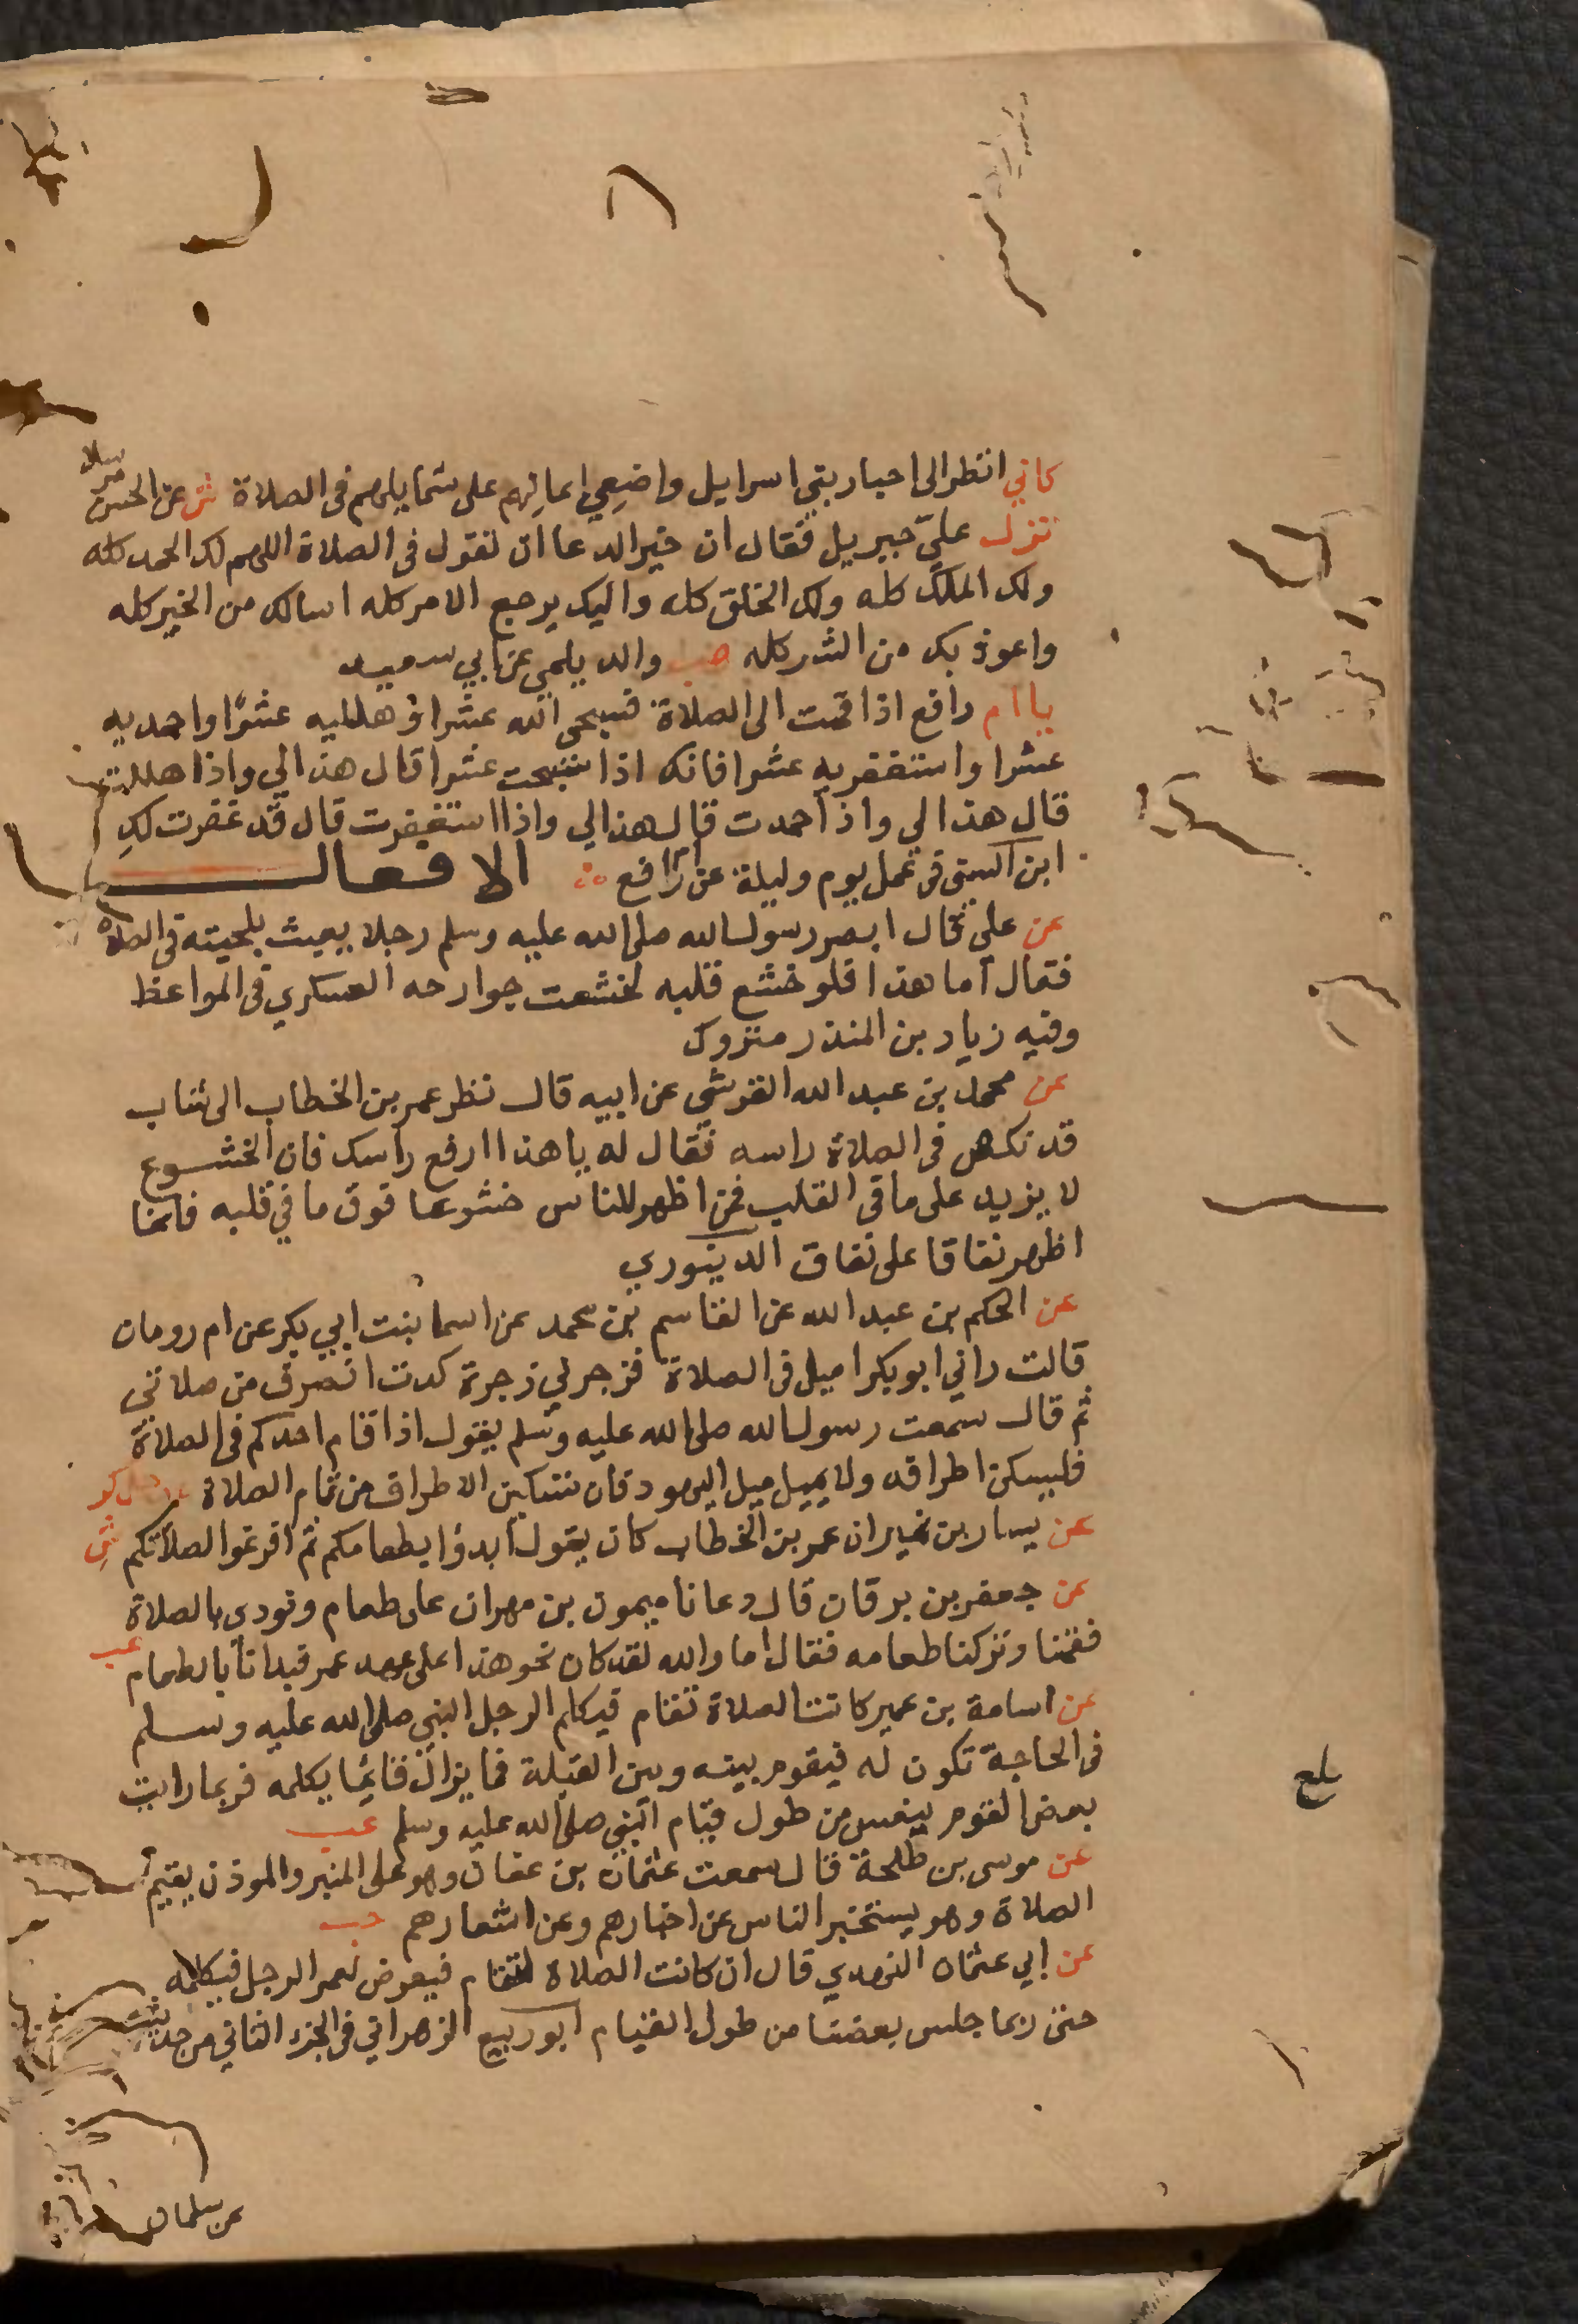 كاني انظر الى احبار بني اسرايل واضعي ايمانهم على شمايلهم في الصلاة ش عن الحسن مرسلا
نزل عليّ جبريل فقال ان خير الدعا ان تقول في الصلاة اللهم لك الحمد كله
ولك الملك كله ولك الخلق كله واليك يرجع الامر كله اسالك من الخير كله
واعوذ بك من الشر كله هب والديلمي عن ابي سعيد
يا ام رافع اذا قمت الى الصلاة فسبحي الله عشرا وهلليه عشرا واحمديه
عشرا واستغفريه عشرا فانك اذا سبحت عشرا قال هذا لي واذا هللت
قال هذا لي واذا حمدت قال هذا لي واذا استغفرت قال قد غفرت لكِ
ابن السني في عمل يوم وليلة عن رافع الافعال
عن علي قال ابصر رسول الله صلى الله عليه وسلم رجلا يعبث بلحيته في الصلاة
فقال اما هذا فلو خشع قلبه لخشعت جوارحه العسكري في المواعظ
وفيه زياد بن المنذر متروك
عن محمد بن عبد الله القرشي عن ابيه قال نظر عمر بن الخطاب الى شاب
قد نكس في الصلاة راسه فقال له يا هذا ارفع راسك فان الخشوع
لا يزيد على ما في القلب فمن اظهر للناس خشوعا فوق ما في قلبه فانما
اظهر نفاقا على نفاق الدينوري
عن الحكم بن عبد الله عن القاسم بن محمد عن اسما بنت ابي بكر عن ام رومان
قالت راني ابو بكر اميل في الصلاة فزجرني زجرة كدت انصرف من صلاتي
ثم قال سمعت رسول الله صلى الله عليه وسلم يقول اذا قام احدكم في الصلاة
فليسكن اطرافه ولا يميل ميل اليهود فان تسكين الاطراف من تمام الصلاة عد حل كر
عن يسار بن نمير ان عمر بن الخطاب كان يقول ابدؤا بطعامكم ثم افرغوا لصلاتكم ش
عن جعفر بن برقان قال دعانا ميمون بن مهران على طعام ونودي بالصلاة
فقمنا وتركنا طعامه فقال اما والله لقد كان نحو هذا على عهد عمر فبدانا بالطعام عب
عن اسامة بن عمير كانت الصلاة تقام فيكلم الرجل النبي صلى الله عليه وسلم
في الحاجة تكون له فيقوم بينه وبين القبلة فما يزال قائما يكلمه فربما رايت
بعض القوم ينعس من طول قيام النبي صلى الله عليه وسلم عب
عن موسى بن طلحة قال سمعت عثمان بن عفان وهو على المنبر والموذن يقيم
الصلاة وهو يستخبر الناس عن اخبارهم وعن اشعارهم حب
عن ابي عثمان النهدي قال ان كانت الصلاة لتقام فيعرض لعمر الرجل فيكلمه
حتى ربما جلس بعضنا من طول القيام ابو ربيع الزهراني في الجزء الثاني من حديثه
بلغ
عن سلمان